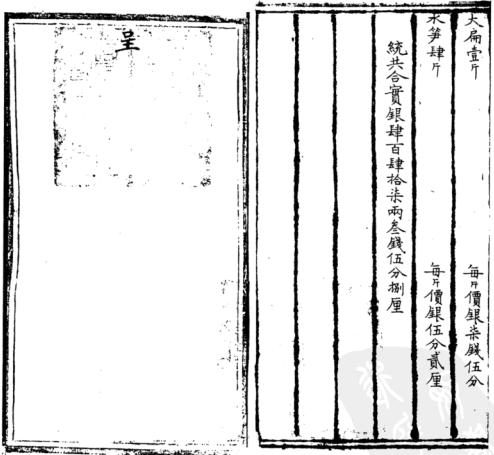 大扁壹斤 每斤價銀柒錢伍分
永笋肆斤 每斤價銀伍分貳厘
統共合實銀肆百肆拾柒兩叁錢伍分捌厘
呈